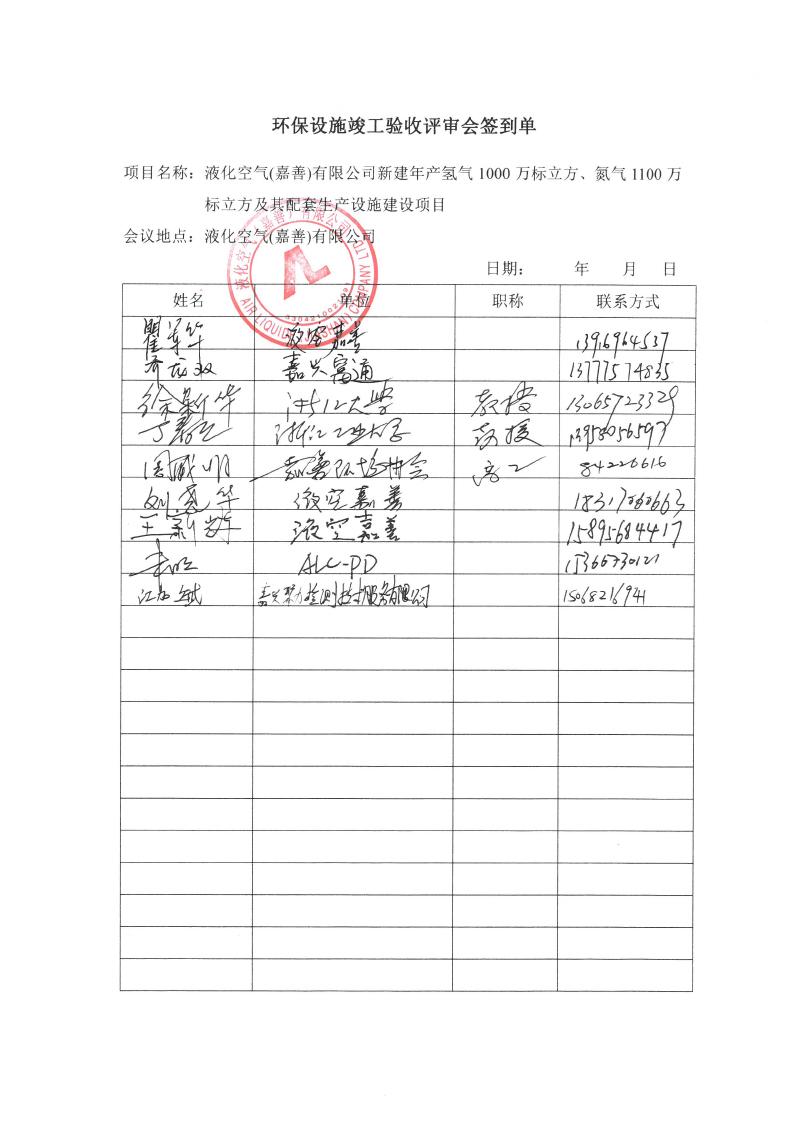 环保设施竣工验收评审会签到单
项目名称：液化空气(嘉善)有限公司新建年产氢气 1000 万标立方、氮气 1100 万
标立方及其配套生产设施建设项目
会议地点：液化空气(嘉善)有限公司
日期： 年 月 日
姓名 单位 职称 联系方式
液空嘉善 13916964537
嘉兴富通 13777574835
徐新华 浙江大学 教授 13065723329
浙江工业大学 教授 13958056597
周咸明 高工 84226616
刘亮华 液空嘉善
王新辉 液空嘉善 15895684417
ALC-PD 15366730121
江 嘉兴聚力检测技术服务有限公司 15068216941
液化空气(嘉善)有限公司
AIR LIQUIDE (JIASHAN) COMPANY LTD